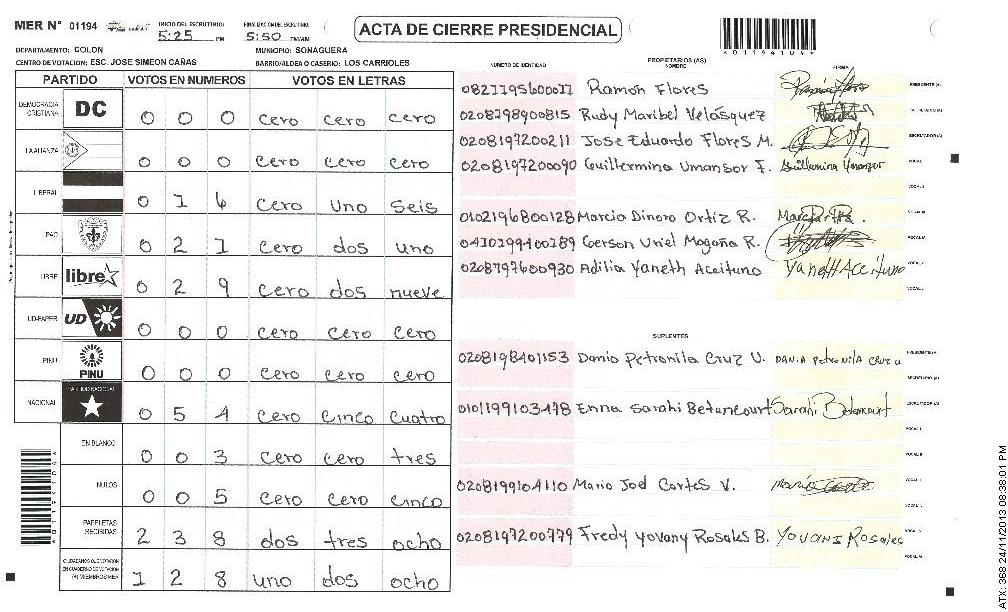 MER N° 01194 INICIO DEL ESCRUTINIO: 5:25 PM FINALIZACION DEL ESCRUTINIO: 5:50 PM/AM ACTA DE CIERRE PRESIDENCIAL
DEPARTAMENTO: COLON MUNICIPIO: SONAGUERA
CENTRO DE VOTACION: ESC. JOSE SIMEON CAÑAS BARRIO/ALDEA O CASERIO: LOS CARRIOLES
PARTIDO VOTOS EN NUMEROS VOTOS EN LETRAS
DEMOCRACIA CRISTIANA DC 0 0 0 cero cero cero
LA ALIANZA 0 0 0 cero cero cero
LIBERAL 0 1 6 cero uno seis
PAC 0 2 1 cero dos uno
LIBRE libre 0 2 9 cero dos nueve
UD-FAPER UD 0 0 0 cero cero cero
PINU PINU 0 0 0 cero cero cero
NACIONAL PARTIDO NACIONAL 0 5 4 cero cinco cuatro
EN BLANCO 0 0 3 cero cero tres
NULOS 0 0 5 cero cero cinco
PAPELETAS RECIBIDAS 2 3 8 dos tres ocho
CIUDADANOS QUE VOTARON EN CUADERNO DE VOTACION (+) MIEMBROS MER 1 2 8 uno dos ocho
PROPIETARIOS (AS)
NUMERO DE IDENTIDAD NOMBRE FIRMA
Ramón Flores PRESIDENTE (A)
0208798900815 Rudy Maribel Velásquez SECRETARIO (A)
0208197200211 Jose Eduardo Flores M. ESCRUTADOR (A)
0208197200090 Guillermina Umansor F. Guillermina Umanzor VOCAL I
VOCAL II
0102196800128 Marcio Dinoro Ortiz R. VOCAL III
0410199400289 Gerson Uriel Magaña R. VOCAL IV
Adilia Yaneth Aceituno Yaneth Aceituno VOCAL V
SUPLENTES
0208198401153 Dania Petronila Cruz U. DANIA Petronila CRUZ U PRESIDENTE (A)
SECRETARIO (A)
0101199103478 Enna Sarahi Betancourt Sarahi Betancourt ESCRUTADOR (A)
VOCAL I
VOCAL II
0208199104110 Mario Joel Cortes V.
0208197200779 Fredy Yovany Rosales B. YOVANI Rosales
ATX: 368 24/11/2013 08:38:01 PM